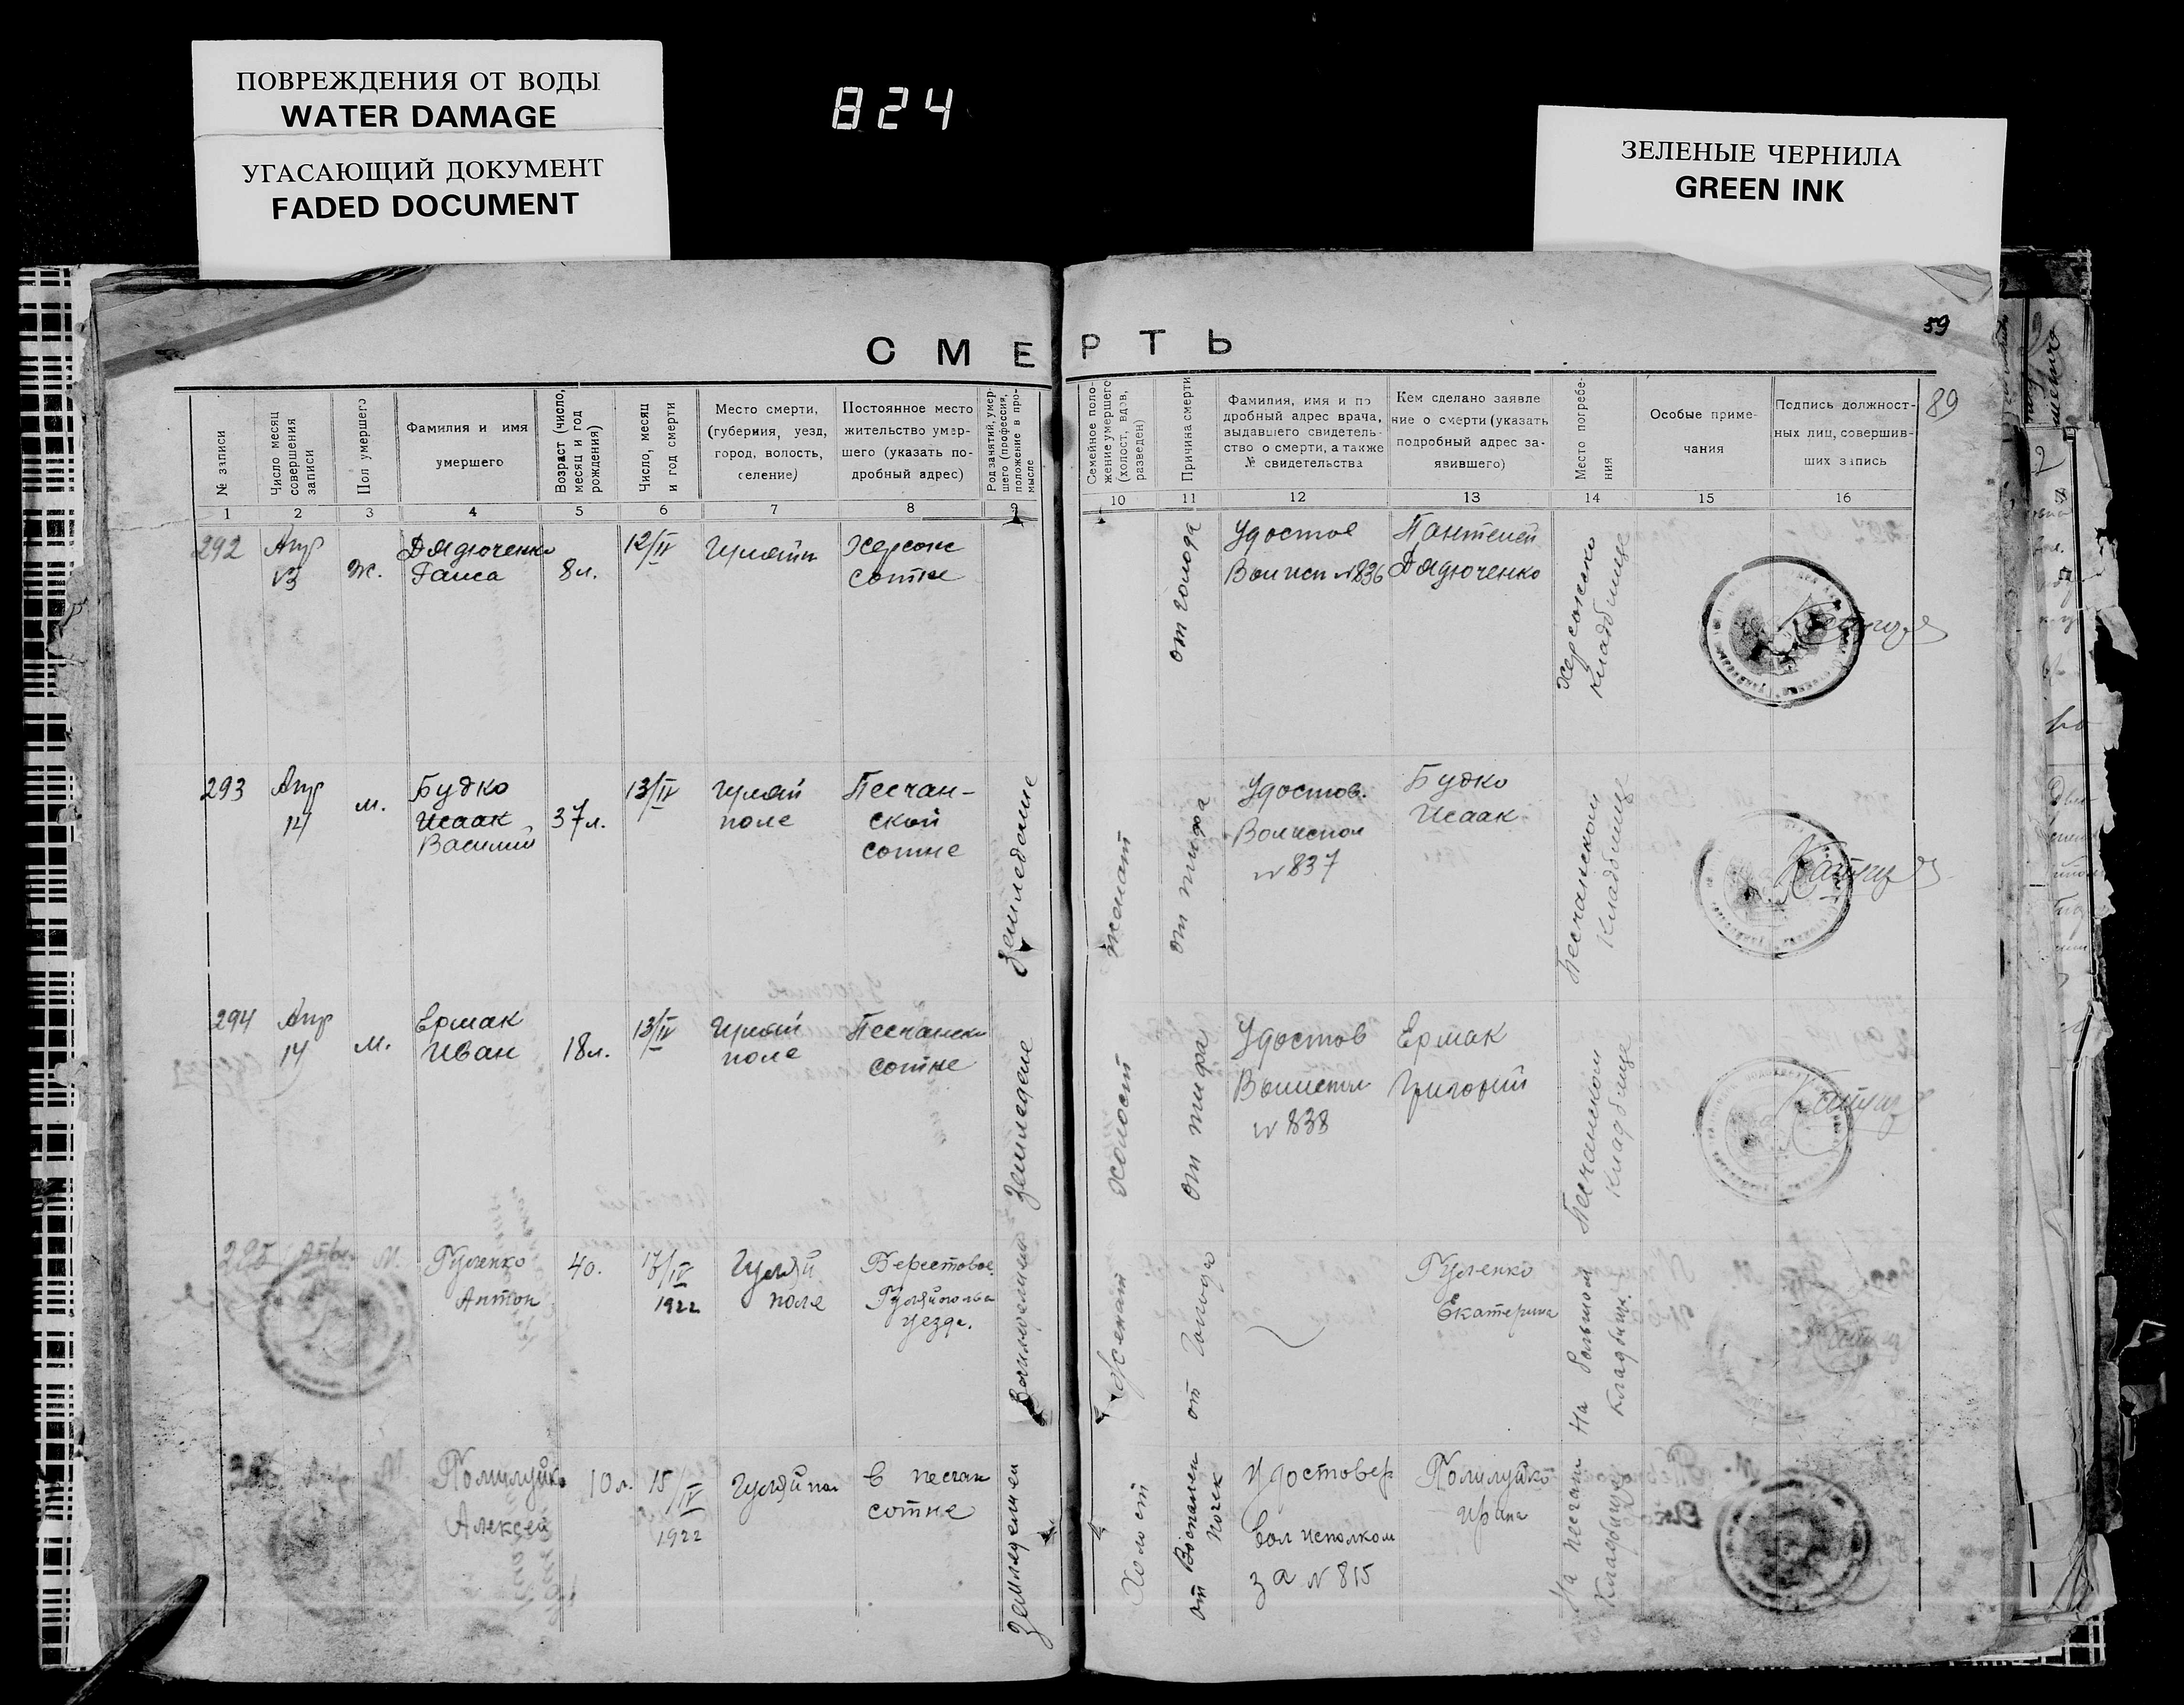 ПОВРЕЖДЕНИЯ ОТ ВОДЫ
WATER DAMAGE
УГАСАЮЩИЙ ДОКУМЕНТ
FADED DOCUMENT
824
ЗЕЛЕНЫЕ ЧЕРНИЛА
GREEN INK
59
89
СМЕРТЬ
№ записи
Число месяц
совершения
записи
Пол умершего
Фамилия и имя
умершего
Возраст (число,
месяц и год
рождения)
Число, месяц
и год смерти
Место смерти,
(губерния, уезд,
город, волость,
селение)
Постоянное место
жительство умер-
шего (указать по-
дробный адрес)
Род занятий, умер-
шего (профессия,
положение в про-
мысле
Семейное поло-
жение умершего
(холост, вдов,
разведен)
Причина смерти
Фамилия, имя и по
дробный адрес врача,
выдавшего свидетель-
ство о смерти, а также
№ свидетельства
Кем сделано заявле
ние о смерти (указать
подробный адрес за-
явившего)
Место погребе-
ния
Особые приме-
чания
Подпись должност-
ных лиц, совершив-
ших запись
1 2 3 4 5 6 7 8 9 10 11 12 13 14 15 16
292
Апр
13
ж.
Дядюченко
8л.
12/IV
Херсонс
сотне
от голода
Удостов
Волисп №836
Пантелей
Дядюченко
Херсонско
кладбище
293
Апр
м.
Будко
Исаак
Василий
37л.
13/IV
Гуляй
поле
Песчан-
ской
сотне
женат
от тифа
Удостов.
Волиспол
№837
Будко
Исаак
Песчанском
кладбище
294
Апр
14
м.
Ермак
Иван
18л.
13/IV
Гуляй
поле
Песчанско
сотне
Земледелие
холост
от тифа
Удостов
Волиспол
№838
Ермак
Григорий
Песчанском
кладбище
М.
Антон
40.
17/IV
1922
Гуляй
поле
Берестовое
Гуляйпольск
уезда.
от Голода
Екатерина
На большом
кладбище.
Помилуйко
Алексей
10л.
15/IV
1922
Гуляйпол
в песчан
сотне
Холост
от Воспален
почек
Удостовер
Волисполком
за №815
Помилуйко
Ирина
На песчан
Кладбище